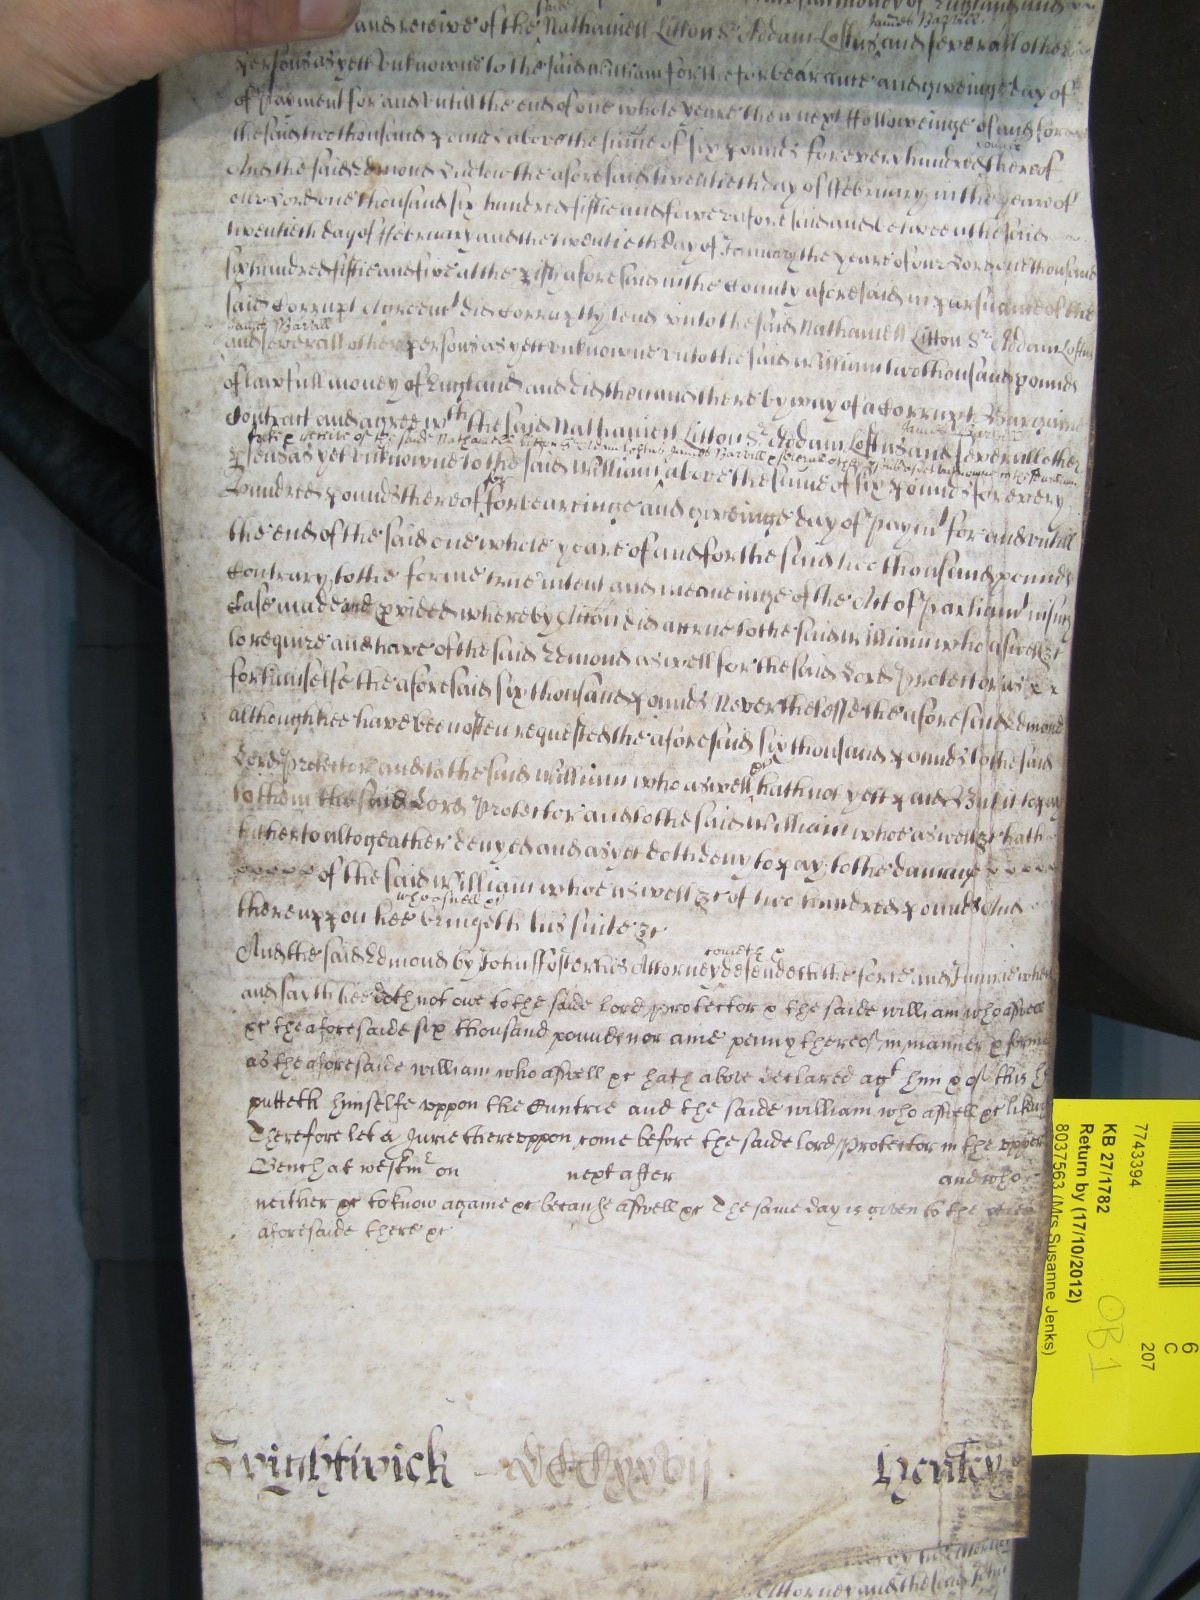 lawfull money of England and
said
and receive of the Nathaniell Litton Sr Addam Loftus and severall other
James Barrill
persons as yett unknowne to the said William for the forbearance and giveinge day of
of payment for and untill the end of one whole yeare then next followeinge of and for
the said two thousand pounds above the sume of six pounds for every hundred thereof
pounds
And the said Edmond Ludlow the aforesaid twentieth day of February in the yeare of
our Lord one thousand six hundred fiftie and fower aforesaid and betweene the said
twentieth day of February and the twentieth day of January the yeare of our Lord one thousand
six hundred fiftie and five at the pish aforesaid in the County aforesaid in pursuance of the
said Corrupt Agreemt did Corruptly lend unto the said Nathaniell Litton Sr Addam Loftus
James Barrill
and severall other persons as yett unknowne unto the said William two thousand pounds
of lawfull money of England and did then and there by way of a Corrupt Bargaine
Contract and agree wth the said Nathaniell Litton Sr Addam Loftus and severall other
James Barrill
take & receive of the saide Nathaniell Litton Sr Addam Loftus James Barrill & severall other psons as yet unknowne to the sd william
psons as yet unknowne to the said William above the sume of six pounds for every
for
hundred pounds thereof forbearinge and giveinge day of paymt for and untill
the end of the said one whole yeare of and for the said two thousand pounds
Contrary to the forme true intent and meaneinge of the Act of Parliamt in such
Case made and pvided whereby Action did accrue to the said William who aswell &c
to require and have of the said Edmond aswell for the said Lord Protector as
for himselfe the aforesaid six thousand pounds Neverthelesse the aforesaid Edmond
although hee have been often requested the aforesaid six thousand pounds to the said
Lord Protector and to the said William who aswell &c hath not yett paid But it to pay
to them the said Lord Protector and to the said William whoe aswell &c hath
hitherto altogeather denyed and as yet doth deny to pay to the damage
of the said William whoe aswell &c of two hundred pounds And
who aswell &c
thereuppon hee bringeth his suite &c
And the said Edmond by John Foster his Attorney defendeth the force and Injurie when
cometh &
and sayth hee doth not owe to the saide Lord Protector & the saide william who aswell
&c the aforesaide six thousand pounds nor anie penny thereof in manner & forme
as the aforesaide william who aswell &c hath above declared agt him & of this he
putteth himselfe uppon the Cuntrie and the saide william who aswell &c likewise
Therefore let a Jurie thereuppon come before the saide Lord Protector in the upper
Bench at Westmr on next after and who
neither &c to know againe &c because aswell &c The same day is given to the pties
aforesaide there &c
Brightwick Henley
Attorney and the said John
7743394
KB 27/1782
Return by (17/10/2012)
8037563 (Mrs Susanne Jenks)
6
C
207
OB1